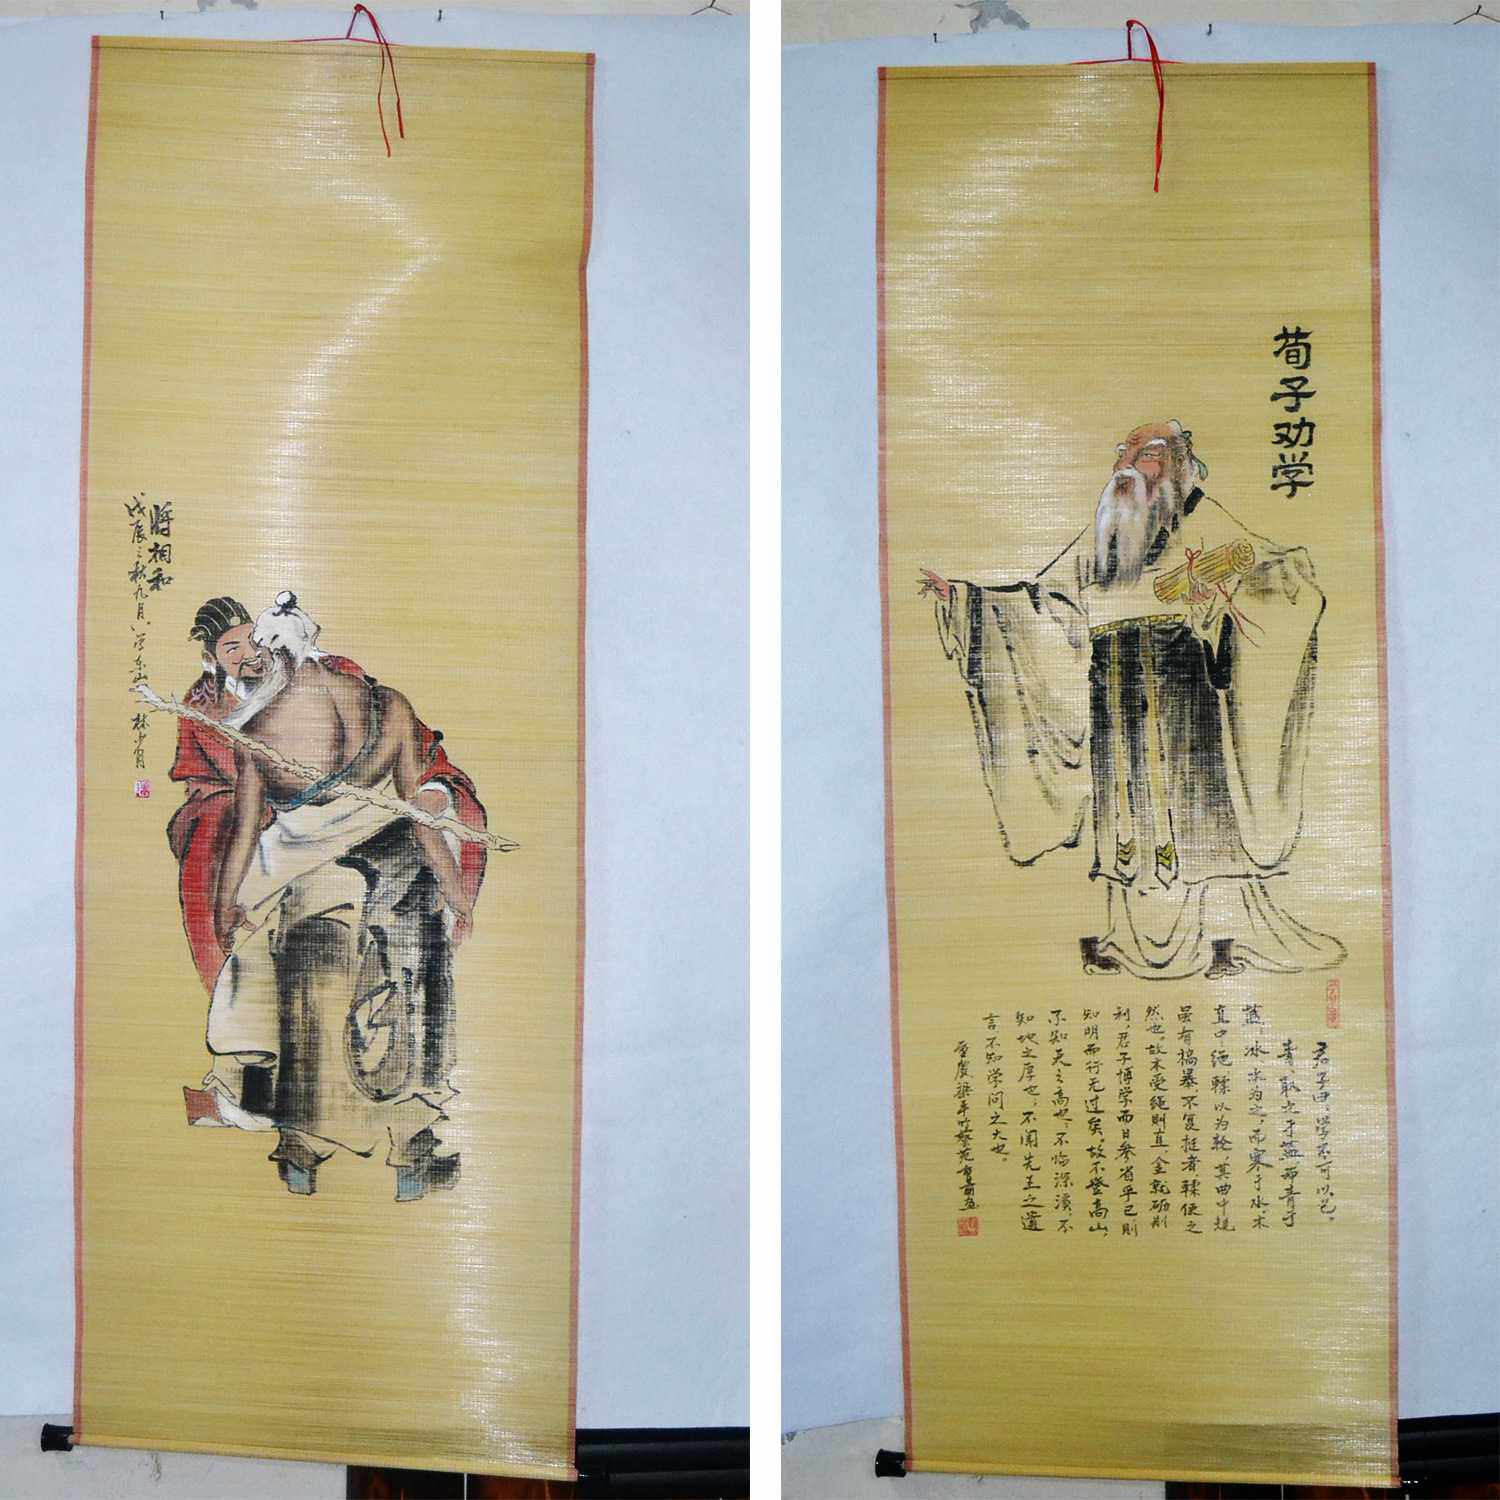 将相和
戊辰之秋九月八学东山
林少月
荀子劝学
君子曰:学不可以已。
青、取之于蓝而青于
蓝,冰水为之,而寒于水,木
直中绳輮以为轮,其曲中规
虽有槁暴、不复挺者輮使之
然也。故木受绳则直,金就砺则
利,君子博学而日参省乎己则
知明而行无过矣。故不登高山,
不知天之高也,不临深溪,不
知地之厚也,不闻先王之遗
言不知学问之大也。
重庆梁平竹帘苑